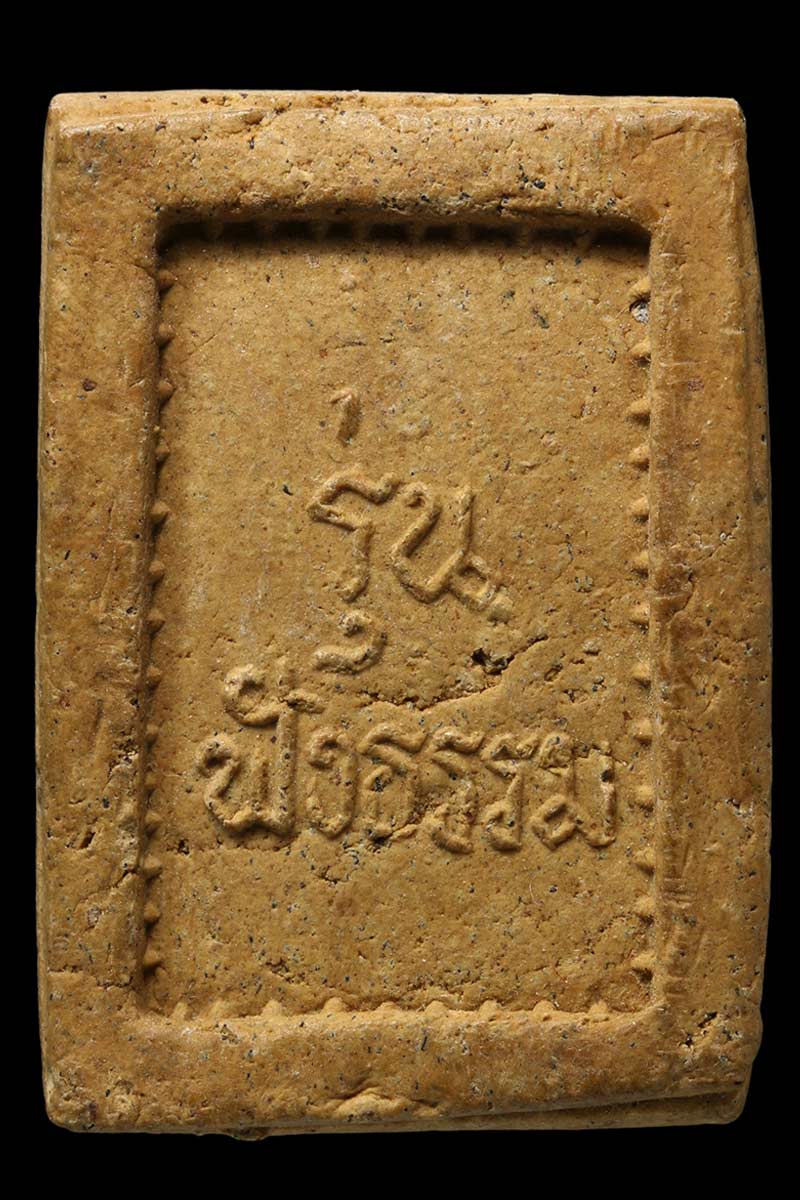 รุ่น
ฟังธรรม